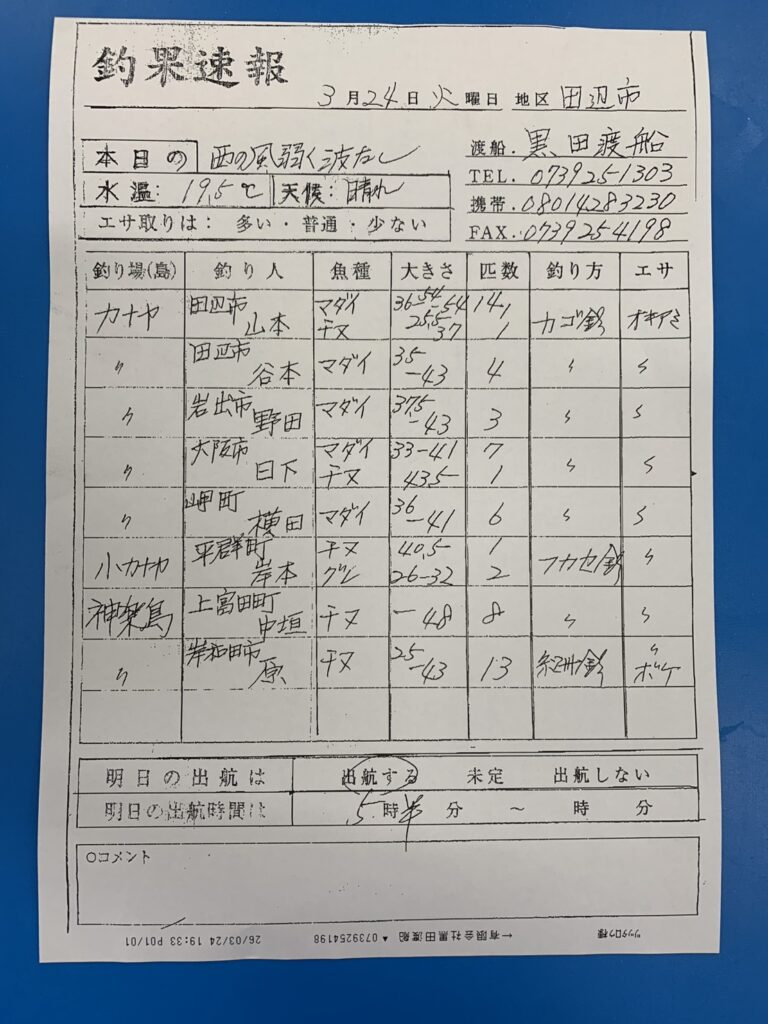 釣果速報
3月24日 火曜日 地区 田辺市
本日の 西の風弱く波なし
水温: 19.5℃ 天候: 晴れ
エサ取りは: 多い・普通・少ない
渡船. 黒田渡船
TEL. 0739251303
携帯. 08014283230
FAX. 0739254198
釣り場(島) 釣り人 魚種 大きさ 匹数 釣り方 エサ
カナヤ 田辺市 山本 マダイ 36-54 14 カゴ釣 オキアミ
チヌ 25.5 37 1
〃 田辺市 谷本 マダイ 35-43 4 〃 〃
〃 岩出市 野田 マダイ 37.5-43 3 〃 〃
〃 大阪市 日下 マダイ 33-41 7 〃 〃
チヌ 43.5 1
〃 岬町 横田 マダイ 36-41 6 〃 〃
小カナヤ 平群町 岸本 チヌ 40.5 1 フカセ釣 〃
グレ 26-32 2
神楽島 上富田町 中垣 チヌ -48 8 〃 〃
〃 岸和田市 原 チヌ 25-43 13 紀州釣 〃 ボケ
明日の出航は 出航する 未定 出航しない
明日の出航時間は 5時半分 〜 時 分
○コメント
26/03/24 19:33 P01/01 ▲0739254198 ←有限会社黒田渡船